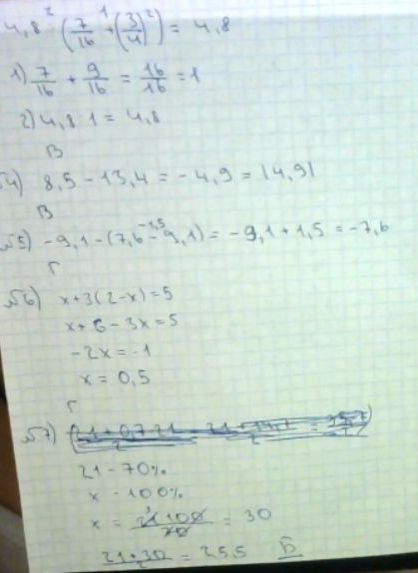 4,8 · (7/16 + (3/4)²) = 4,8
1) 7/16 + 9/16 = 16/16 = 1
2) 4,8 · 1 = 4,8
В
№4) 8,5 - 13,4 = -4,9 = |4,9|
В
№5) -9,1 - (7,6 - 9,1) = -9,1 + 1,5 = -7,6
-1,5
Г
№6) x + 3(2 - x) = 5
x + 6 - 3x = 5
-2x = -1
x = 0,5
Г
№7)
21 - 70%
x - 100%
x = 21·100/70 = 30
21+30/2 = 25,5 Б